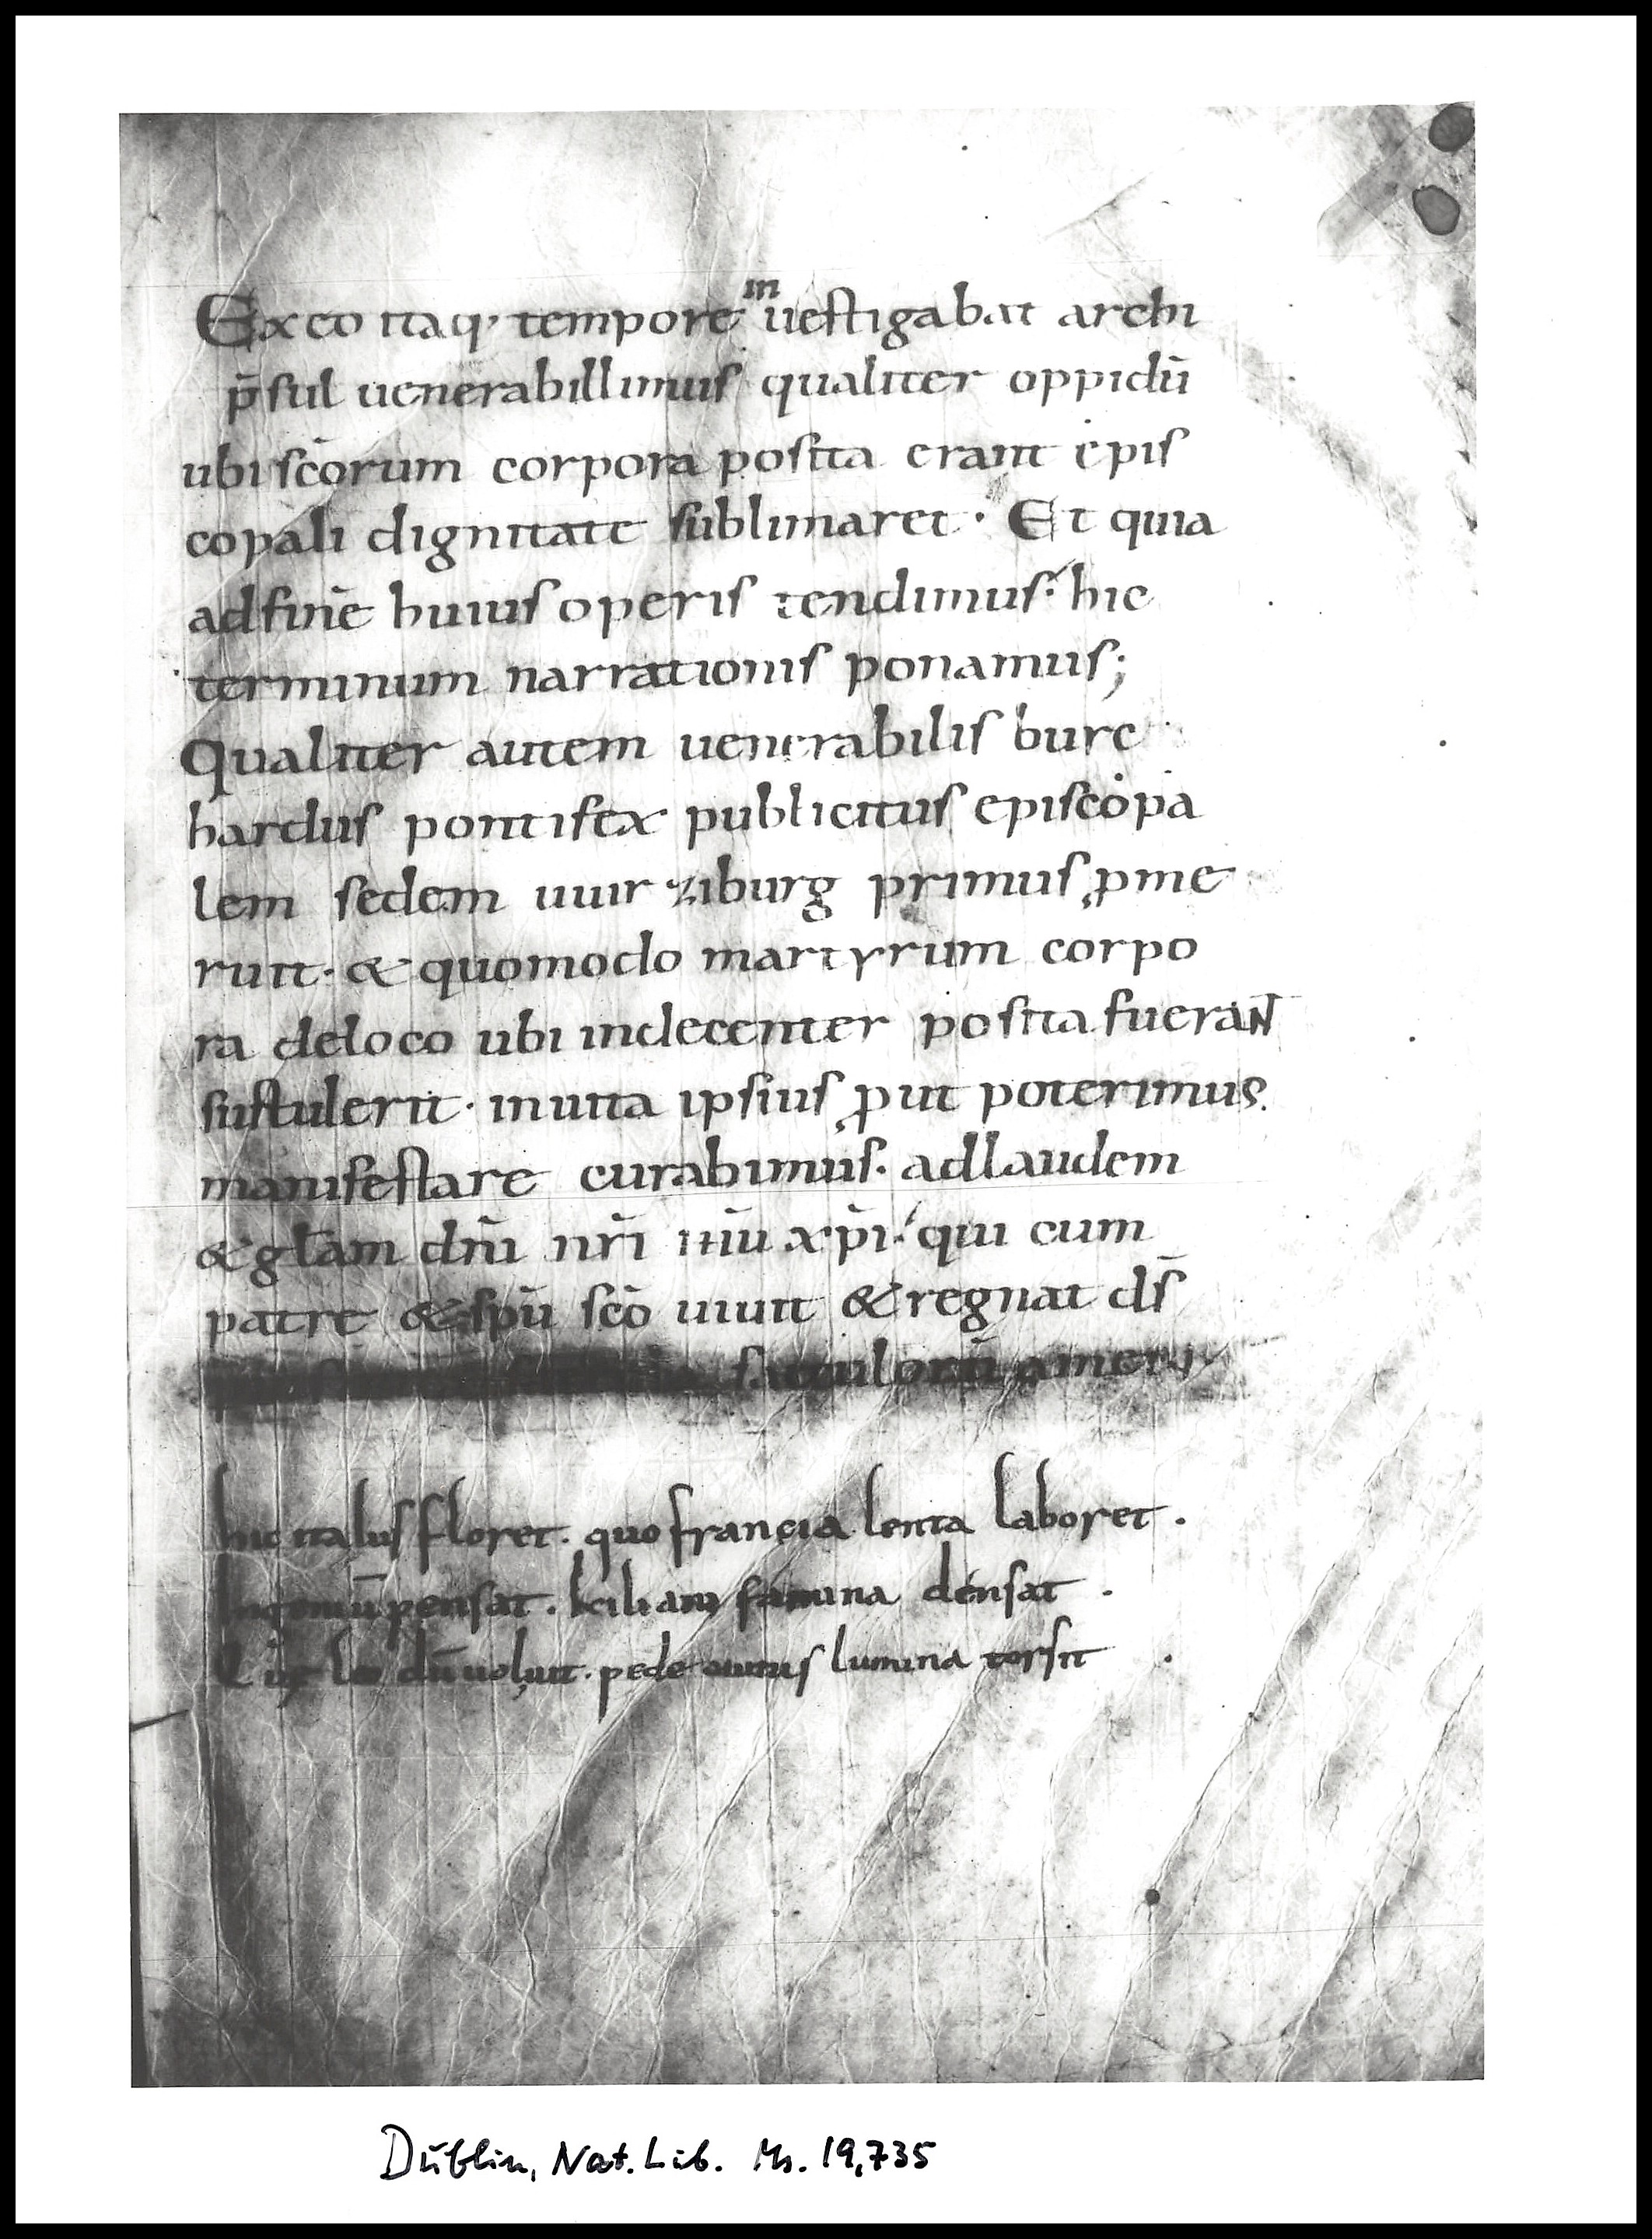 Ex eo itaq· tempore ^in^ uestigabat archi
p̄sul uenerabillimus qualiter oppidū
ubi sc̄orum corpora posita erant epis
copali dignitate sublimaret · Et quia
ad finē huius operis tendimus · hic
terminum narrationis ponamus ;
Qualiter autem uenerabilis burc
hardus pontifex publicitus episcopa
lem sedem uuirziburg primus ꝓme
ruit · & quomodo martyrum corpo
ra de loco ubi indecenter posita fueraNT
sustulerit · in uita ipsius ꝓut poterimus
manifestare curabimus · ad laudem
& gl̄am dn̄i nr̄i ih̄u xp̄i · qui cum
patre & sp̄u sc̄o uiuit & regnat ds̄
saeculorū amen ·
hic italus floret · quo francia lenta laboret ·
Ingeniū pensat · kiliani famina densat ·
dū uoluit · pede lumina torsit ·
Dublin, Nat. Lib. Ms. 19,735